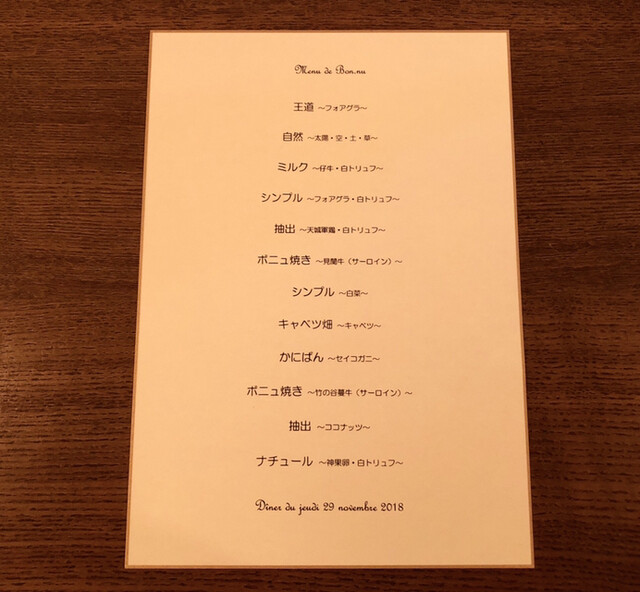 Menu de Bon.nu
王道 ～フォアグラ～
自然 ～太陽・空・土・草～
ミルク ～仔牛・白トリュフ～
シンプル ～フォアグラ・白トリュフ～
抽出 ～天城軍鶏・白トリュフ～
ボニュ焼き ～見蘭牛（サーロイン）～
シンプル ～白菜～
キャベツ畑 ～キャベツ～
かにぱん ～セイコガニ～
ボニュ焼き ～竹の谷蔓牛（サーロイン）～
抽出 ～ココナッツ～
ナチュール ～神果卵・白トリュフ～
Dîner du jeudi 29 novembre 2018